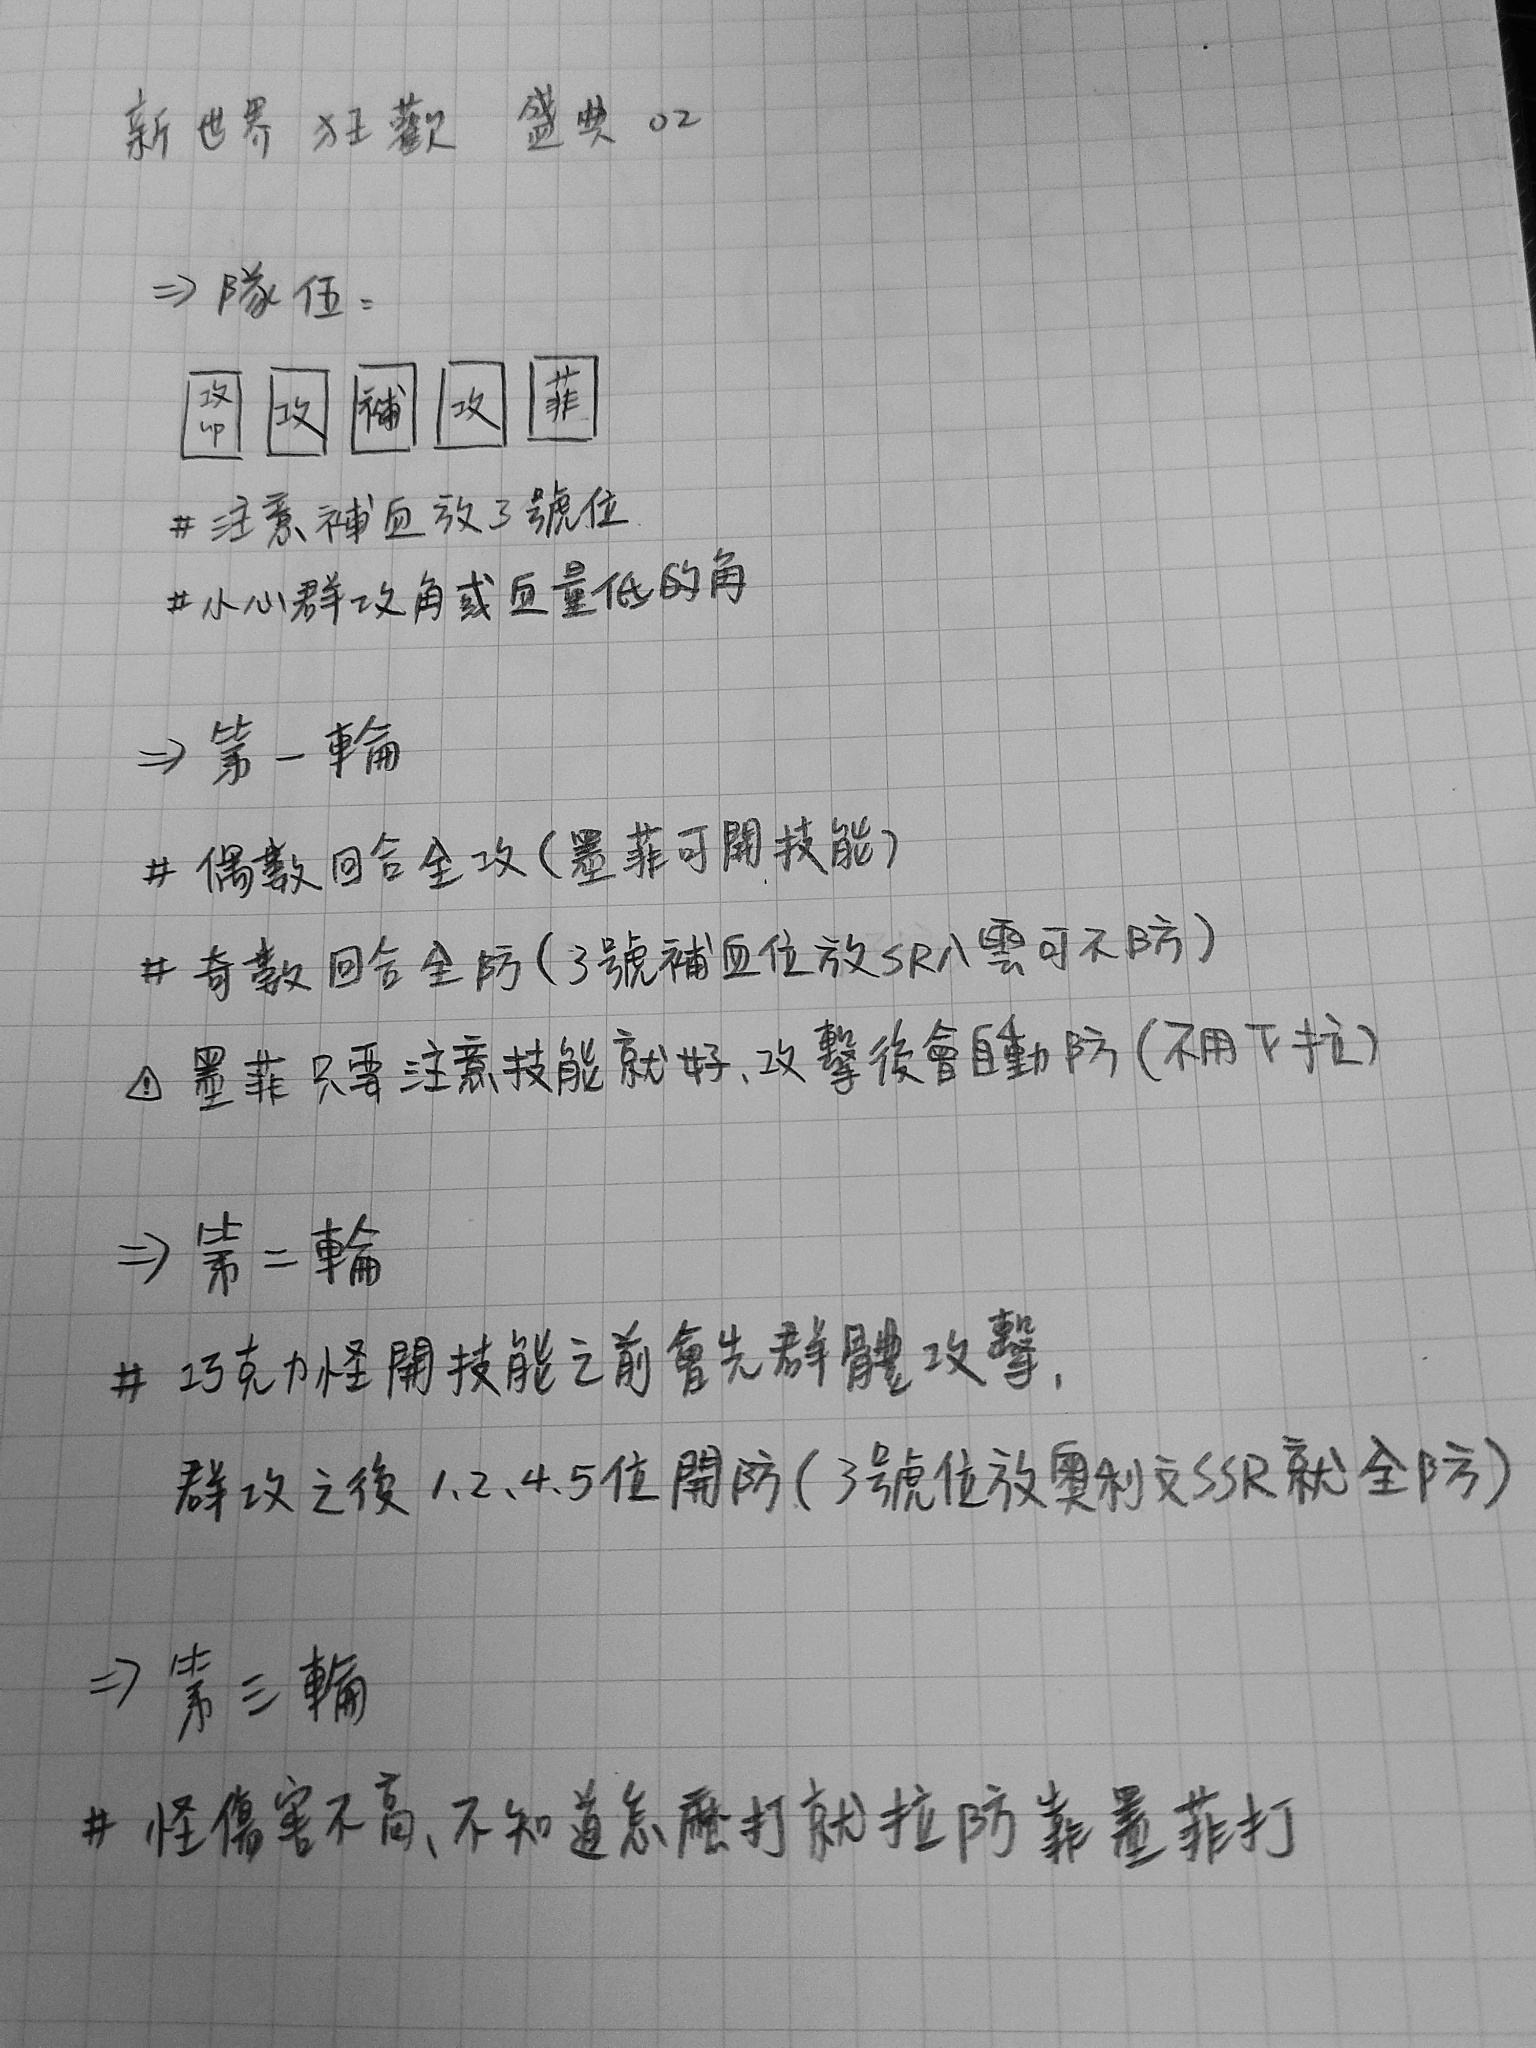 新世界狂歡 盛典 02
⇒ 隊伍:
攻 攻 補 攻 菲
# 注意補血放3號位
# 小心群攻角或血量低的角
⇒ 第一輪
# 偶數回合全攻(墨菲可開技能)
# 奇數回合全防(3號補血位放SR八雲可不防)
⚠ 墨菲只要注意技能就好、攻擊後會自動防(不用下拉)
⇒ 第二輪
# 巧克力怪開技能之前會先群體攻擊,
群攻之後1、2、4、5位開防(3號位放奧利文SSR就全防)
⇒ 第三輪
# 怪傷害不高、不知道怎麼打就拉防靠墨菲打